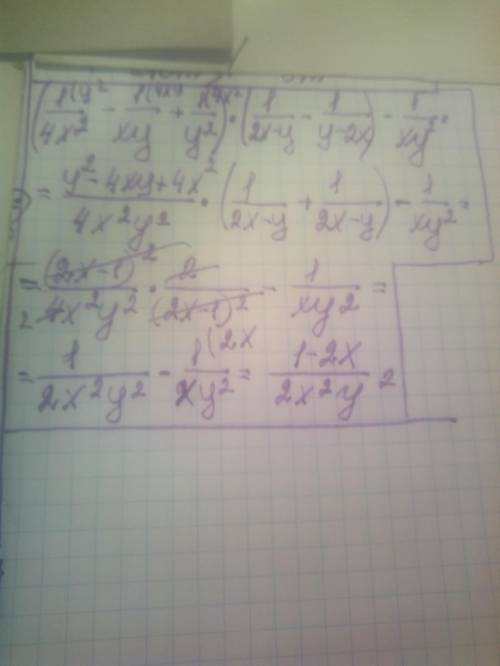 (1(y²/4x² - 1(4xy/xy + 1(4x²/y²) · (1/2x-y - 1/y-2x) - 1/xy² =
= y²-4xy+4x²/4x²y² · (1/2x-y + 1/2x-y) - 1/xy² =
= (2x-1)²/4x²y² · 2/(2x-1)² - 1/xy² =
= 1/2x²y² - 1(2x/xy² = 1-2x/2x²y²